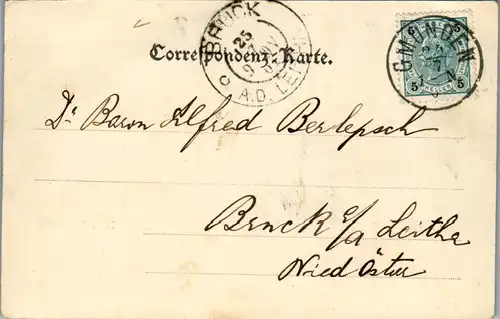 BRUCK
25
9
A.D. LEITHA
GMUNDEN
5 HELLER 5
Correspondenz-Karte.
Dr Baron Alfred Berlepsch
Bruck a/d Leitha
Nied Östur